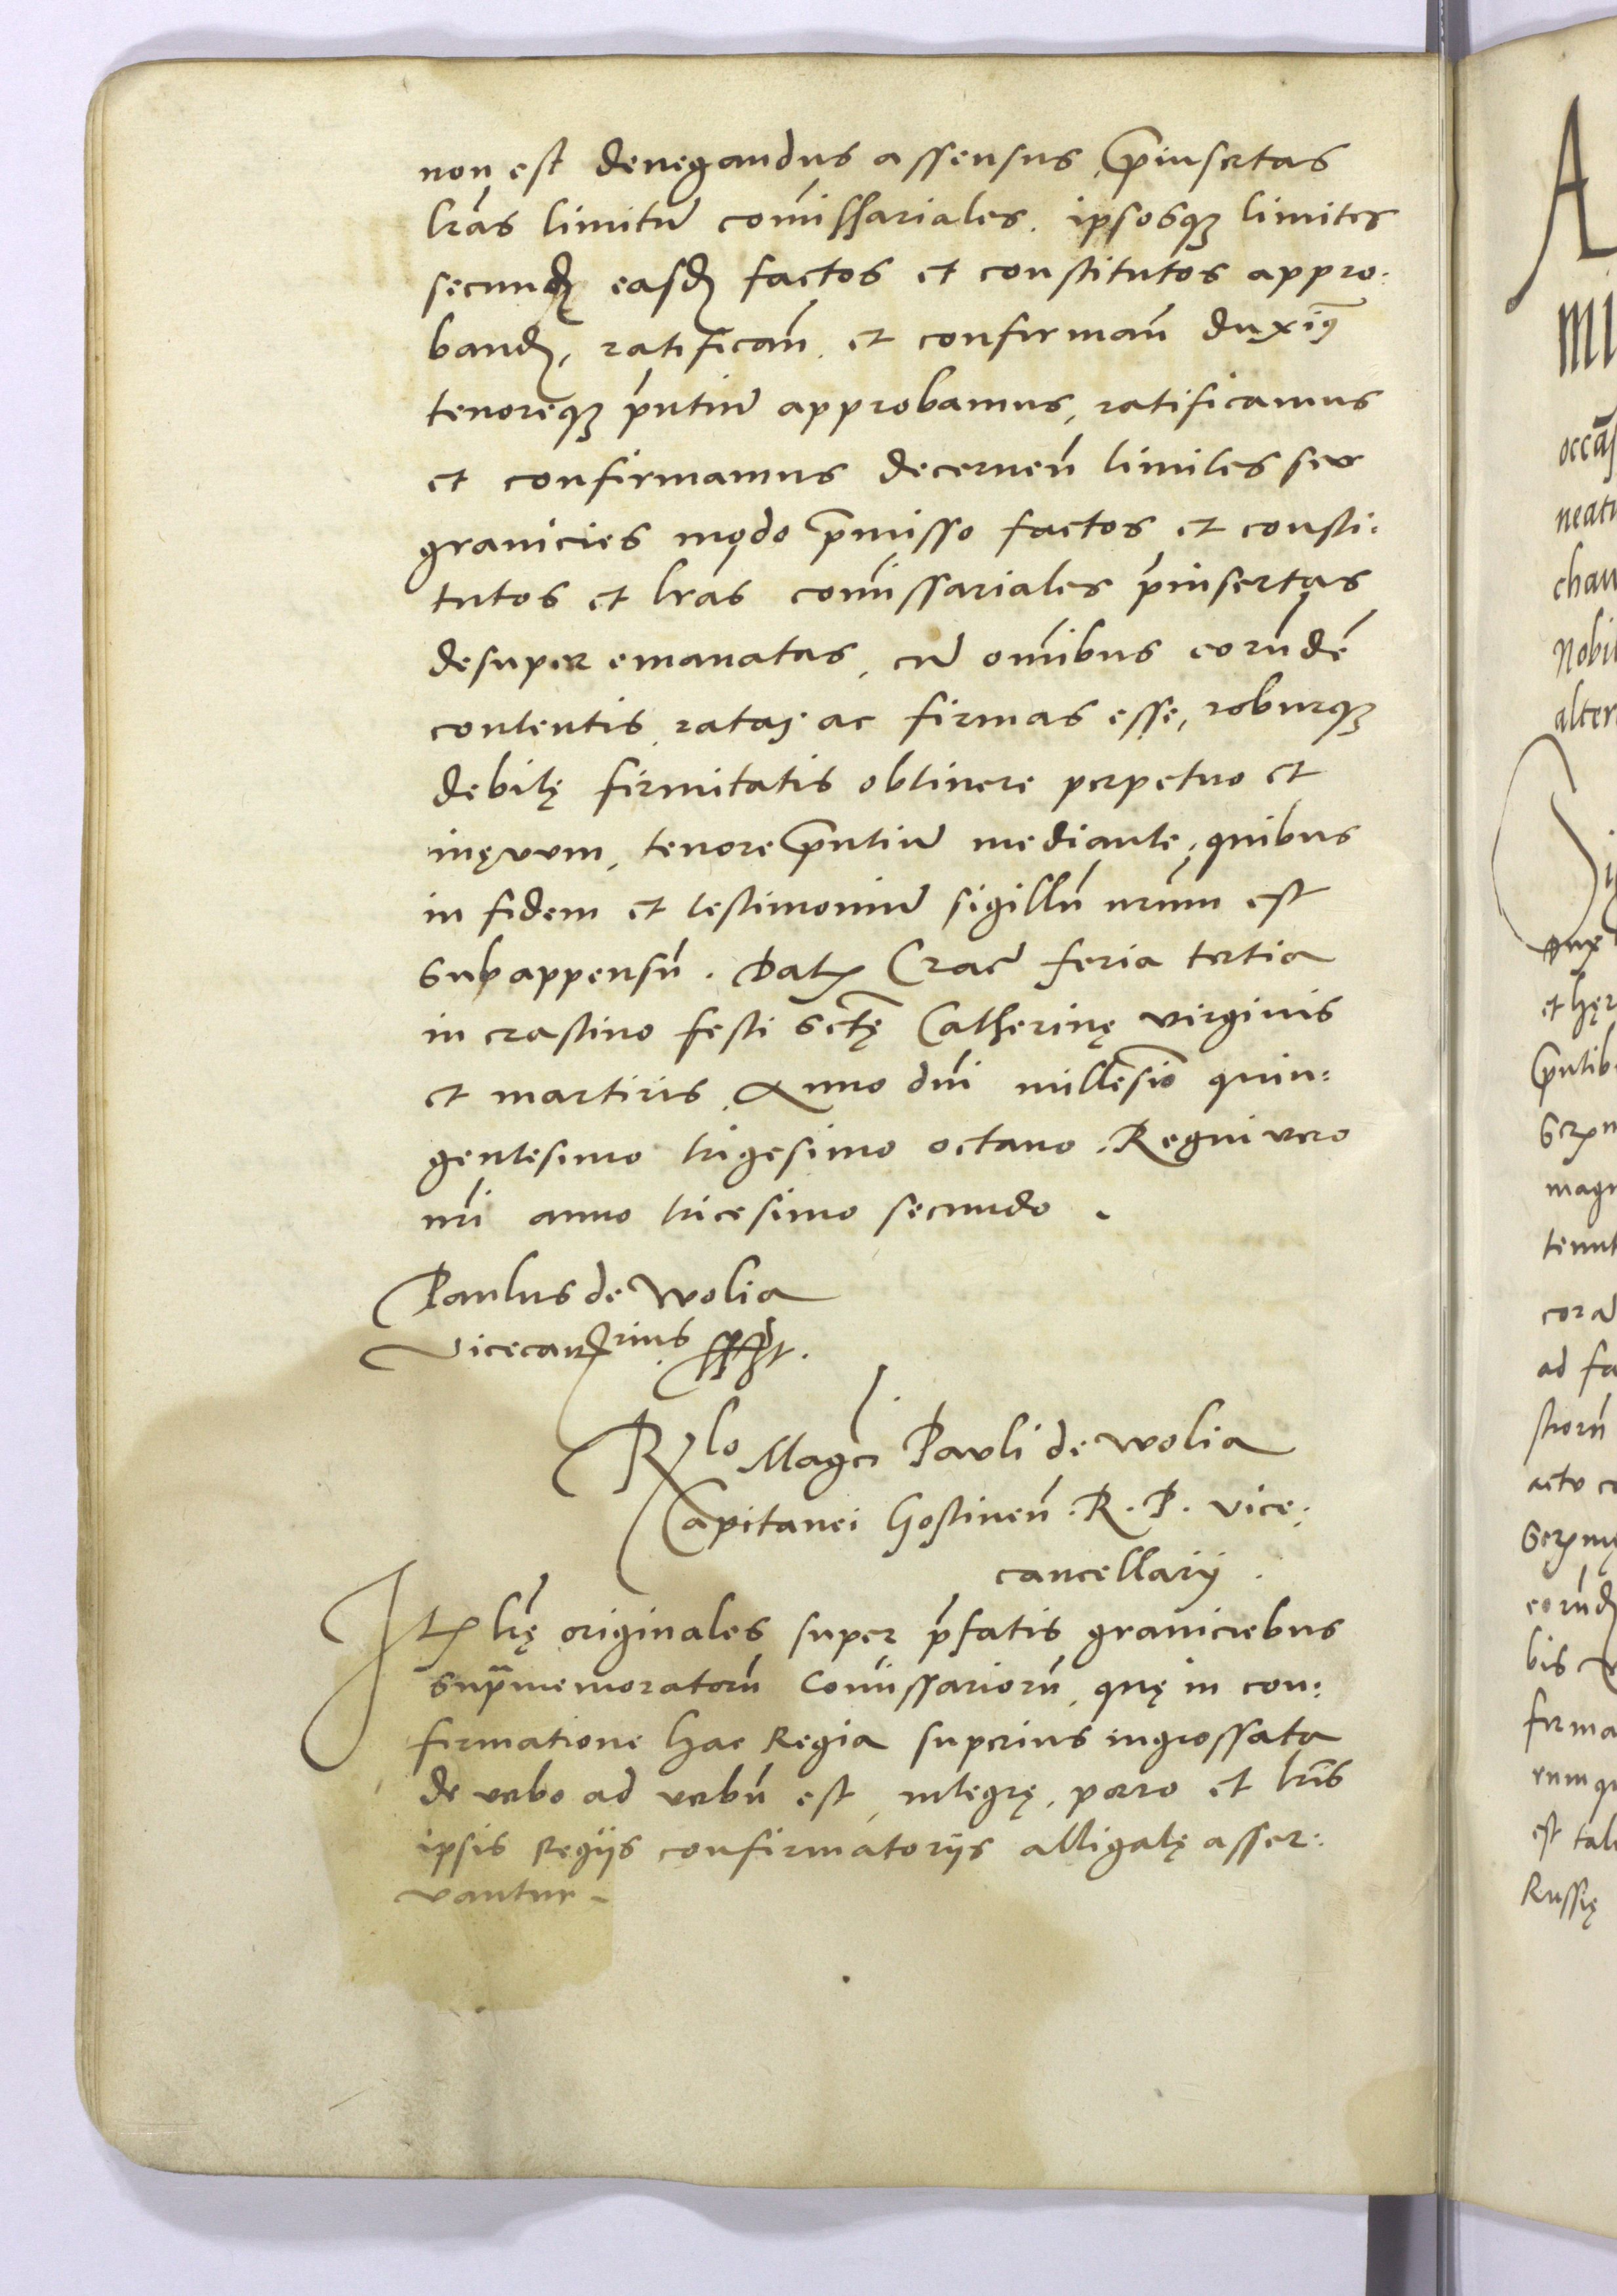 non est denegandus assensus, p̄insertas
lr̄as limitū com̄issariales. ipsosqꝫ limites
secundꝫ easdꝫ factos et constitutos appro:
bandꝫ, ratifican̄. et confirman̄ duxim̄9
tenoreqꝫ p̄ntiū approbamus, ratificamus
et confirmamus decernen̄ limites seu
granicies modo p̄misso factos et consti:
tutos et lr̄as com̄issariales p̄insertas
desuper emanatas, cū om̄ibus eorundē
contentis, ratas ac firmas esse, roburqꝫ
debitę firmitatis obtinere perpetuo et
inęvum, tenore p̄ntiū mediante, quibus
in fidem et testimoniū sigillū nr̄um est
subappensū. Datꝫ Crac̄ feria tertia
in crastino festi sctę Catherinę virginis
et martiris, Anno dn̄i millesīo quin:
gentesimo trigesimo octavo. Regni vero
nr̄i anno tricesimo secundo.
Paulus de Wolia
Vicecancl̄rius sspt.
Rlo Magci Pauli de wolia
Capitanei Gostinen̄. R. P. vice:
cancellarij.
Itꝫ lr̄ę originales super p̄fatis graniciebus
sup̄memoratorū Com̄issariorū, quę in con:
firmatione hac Regia superius ingrossata
de verbo ad verbū est, integrę, porro et lr̄is
ipsis Regijs confirmatorijs alligatę asser:
vantur.
A
MI
occās
neatu
chan
Nobi
alter
quę
et hęr
p̄ntib
magn
tenut
corā
ad fa
storū
actu co
eorūdꝫ
bis
firma
rum qu
est tal
Russię